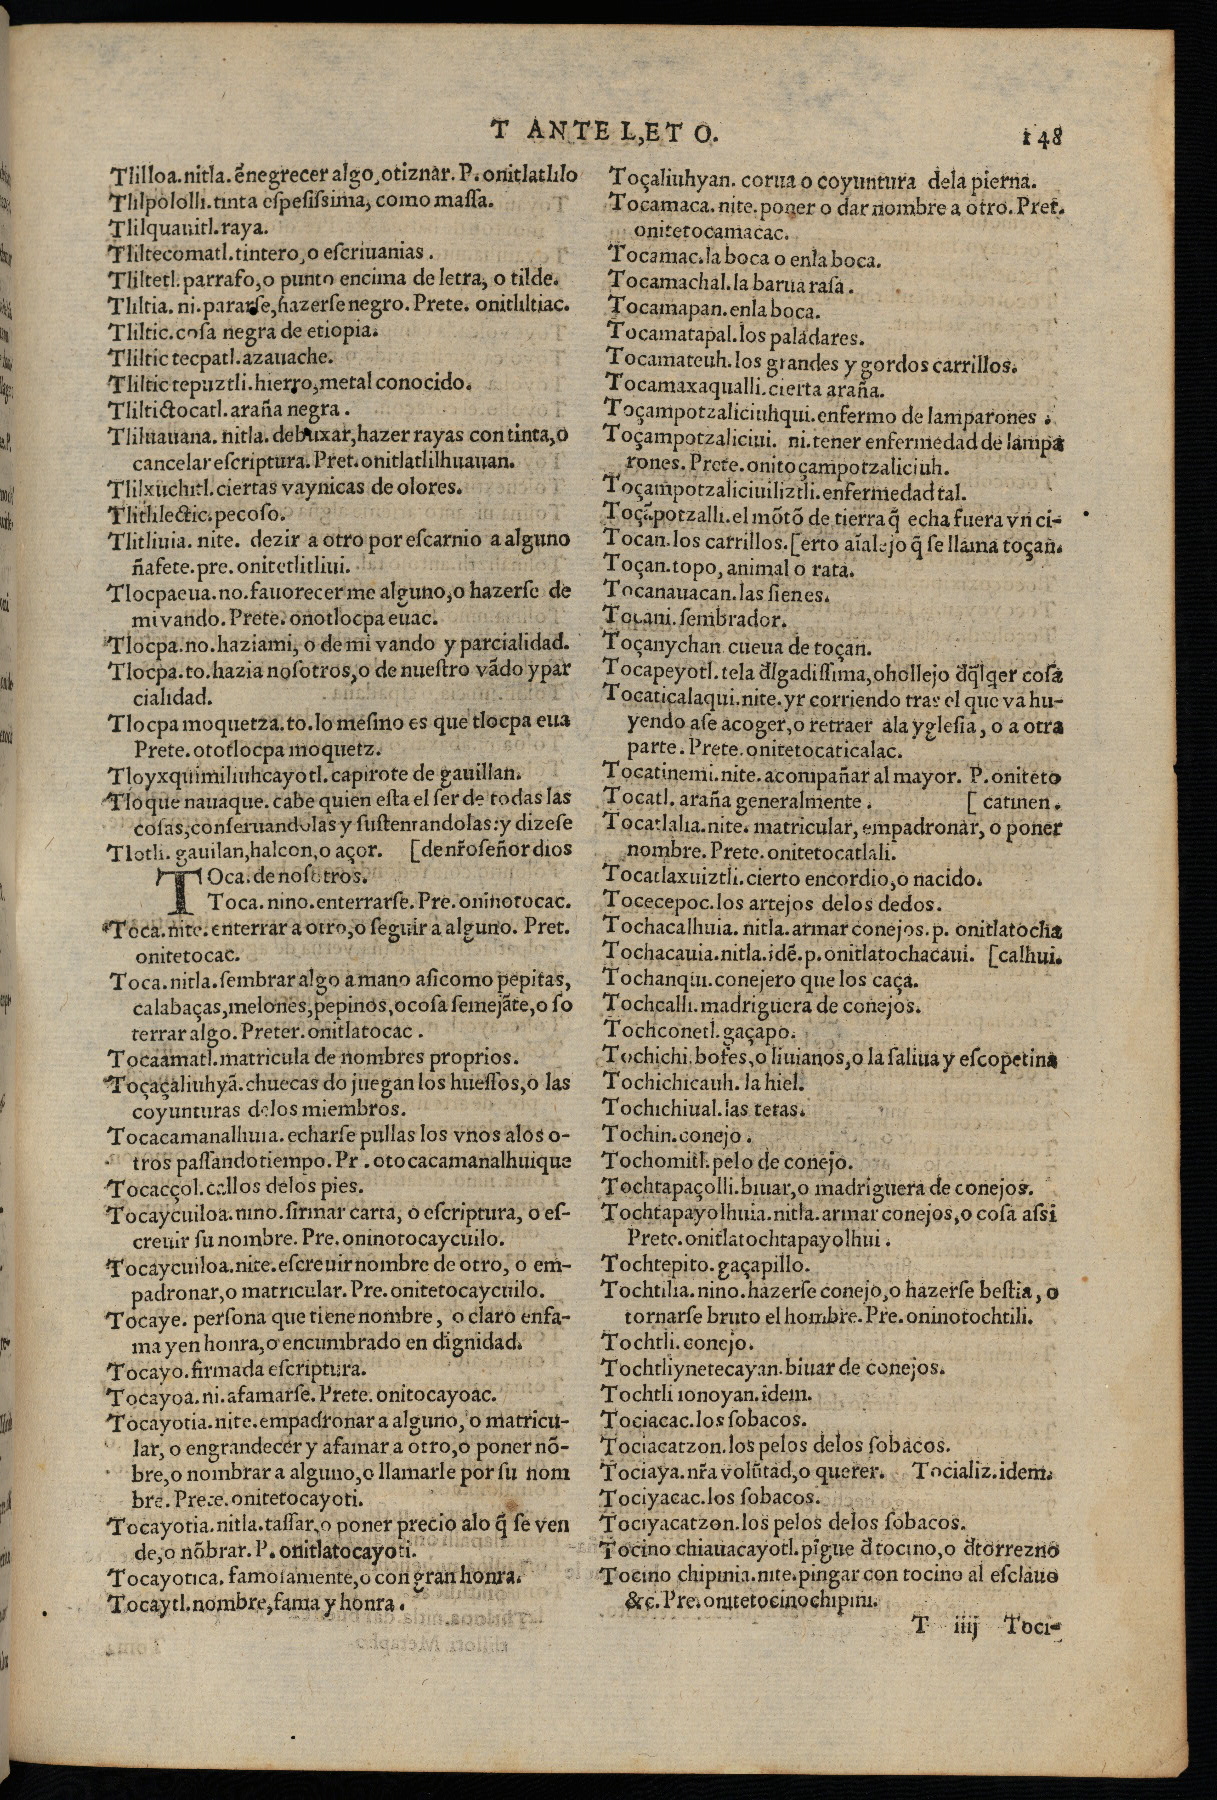 T ANTE L, ET O.
148
Tlilloa.nitla.ẽnegrecer algo,otiznar.P.onitlatlilo
Tlilpololli.tinta espesissima, como massa.
Tlilquauitl.raya.
Tliltecomatl.tintero,o escriuanias.
Tliltetl.parrafo,o punto encima de letra, o tilde.
Tliltia. ni.pararse,hazerse negro.Prete. onitliltiac.
Tliltic.cosa negra de etiopia.
Tliltic tecpatl.azauache.
Tliltic tepuztli.hierro,metal conocido.
Tliltictocatl.araña negra.
Tliluauana. nitla. debuxar,hazer rayas con tinta,o
cancelar escriptura.Pret.onitlatlilhuauan.
Tlilxuchitl.ciertas vaynicas de olores.
Tlitlilectic.pecoso.
Tlitliuia. nite. dezir a otro por escarnio a alguno
ñafete.pre.onitetlitliui.
Tlocpaeua.no.fauorecer me alguno,o hazerse de
mi vando.Prete.onotlocpa euac.
Tlocpa.no.hazia mi, o de mi vando y parcialidad.
Tlocpa.to.hazia nosotros,o de nuestro vãdo y par
cialidad.
Tlocpa moquetza.to.lo mesmo es que tlocpa eua
Prete.ototlocpa moquetz.
Tloyxquimiliuhcayotl.capirote de gauillan.
Tloque nauaque.cabe quien esta el ser de todas las
cosas,conseruandolas y sustentandolas:y dizese
Tlotli. gauilan,halcon,o açor. [de nr̃o señor dios
TOca.de nosotros.
Toca.nino.enterrarse.Pre.oninotocac.
Toca.nite.enterrar a otro,o seguir a alguno. Pret.
onitetocac.
Toca.nitla.sembrar algo a mano asicomo pepitas,
calabaças,melones,pepinos,o cosa semejãte,o so
terrar algo.Preter.onitlatocac.
Tocaamatl.matricula de nombres proprios.
Toçaçaliuhyã.chuecas do juegan los huessos,o las
coyunturas delos miembros.
Tocacamanalhuia.echarse pullas los vnos alos o-
tros passando tiempo.Pr.otocacamanalhuique
Tocacçol.callos delos pies.
Tocaycuiloa.nino.firmar carta, o escriptura, o es-
creuir su nombre.Pre.oninotocaycuilo.
Tocaycuiloa.nite.escreuir nombre de otro, o em-
padronar,o matricular.Pre.onitetocaycuilo.
Tocaye. persona que tiene nombre, o claro en fa-
ma y en honra,o encumbrado en dignidad.
Tocayo.firmada escriptura.
Tocayoa.ni.afamarse.Prete.onitocayoac.
Tocayotia.nite.empadronar a alguno, o matricu-
lar, o engrandecer y afamar a otro,o poner nõ-
bre,o nombrar a alguno,o llamarle por su nom
bre.Prete.onitetocayoti.
Tocayotia.nitla.tassar,o poner precio alo q̃ se ven
de,o nõbrar.P.onitlatocayoti.
Tocayotica.famosamente,o con gran honra.
Tocaytl.nombre,fama y honra.
Toçaliuhyan. corua o coyuntura dela pierna.
Tocamaca.nite.poner o dar nombre a otro.Pret.
onitetocamacac.
Tocamac.la boca o enla boca.
Tocamachal.la barua rasa.
Tocamapan.enla boca.
Tocamatapal.los paladares.
Tocamateuh.los grandes y gordos carrillos.
Tocamaxaqualli.cierta araña.
Toçampotzaliciuhqui.enfermo de lamparones.
Toçampotzaliciui. ni.tener enfermedad de lampa
rones.Prete.onitoçampotzaliciuh.
Toçampotzaliciuiliztli.enfermedad tal.
Toçãpotzalli.el mõtõ de tierra q̃ echa fuera vn ci-
Tocan.los carrillos.[erto aĩalejo q̃ se llama toçan.
Toçan.topo,animal o rata.
Tocanauacan.las sienes.
Tocani.sembrador.
Toçanychan cueua de toçan.
Tocapeyotl.tela d̃lgadissima,o hollejo d̃q̃lqer cosa
Tocaticalaqui.nite.yr corriendo tras el que va hu-
yendo a se acoger,o retraer ala yglesia, o a otra
parte.Prete.onitetocaticalac.
Tocatinemi.nite.acompañar al mayor. P.oniteto
Tocatl. araña generalmente. [catinen.
Tocatlalia.nite.matricular,empadronar, o poner
nombre.Prete.onitetocatlali.
Tocatlaxuiztli.cierto encordio,o nacido.
Tocecepoc.los artejos delos dedos.
Tochacalhuia. nitla.armar conejos.p. onitlatocha
Tochacauia.nitla.idẽ.p.onitlatochacaui. [calhui.
Tochanqui.conejero que los caça.
Tochcalli.madriguera de conejos.
Tochconetl.gaçapo.
Tochichi.bofes,o liuianos,o la saliua y escopetina
Tochichicauh. la hiel.
Tochichiual.las tetas.
Tochin.conejo.
Tochomitl.pelo de conejo.
Tochtapaçolli.biuar,o madriguera de conejos.
Tochtapayolhuia.nitla.armar conejos,o cosa assi
Prete.onitlatochtapayolhui.
Tochtepito.gaçapillo.
Tochtilia.nino.hazerse conejo,o hazerse bestia, o
tornarse bruto el hombre.Pre.oninotochtili.
Tochtli.conejo.
Tochtliynetecayan.biuar de conejos.
Tochtli ionoyan.idem.
Tociacac.los sobacos.
Tociacatzon.los pelos delos sobacos.
Tociaya.nr̃a volũtad,o querer. Tocializ.idem.
Tociyacac.los sobacos.
Tociyacatzon.los pelos delos sobacos.
Tocino chiauacayotl.pĩgue d̃ tocino,o d̃ torrezno
Tocino chipinia.nite.pingar con tocino al esclauo
&c.Pre.onitetocinochipini.
T iiij Toci-